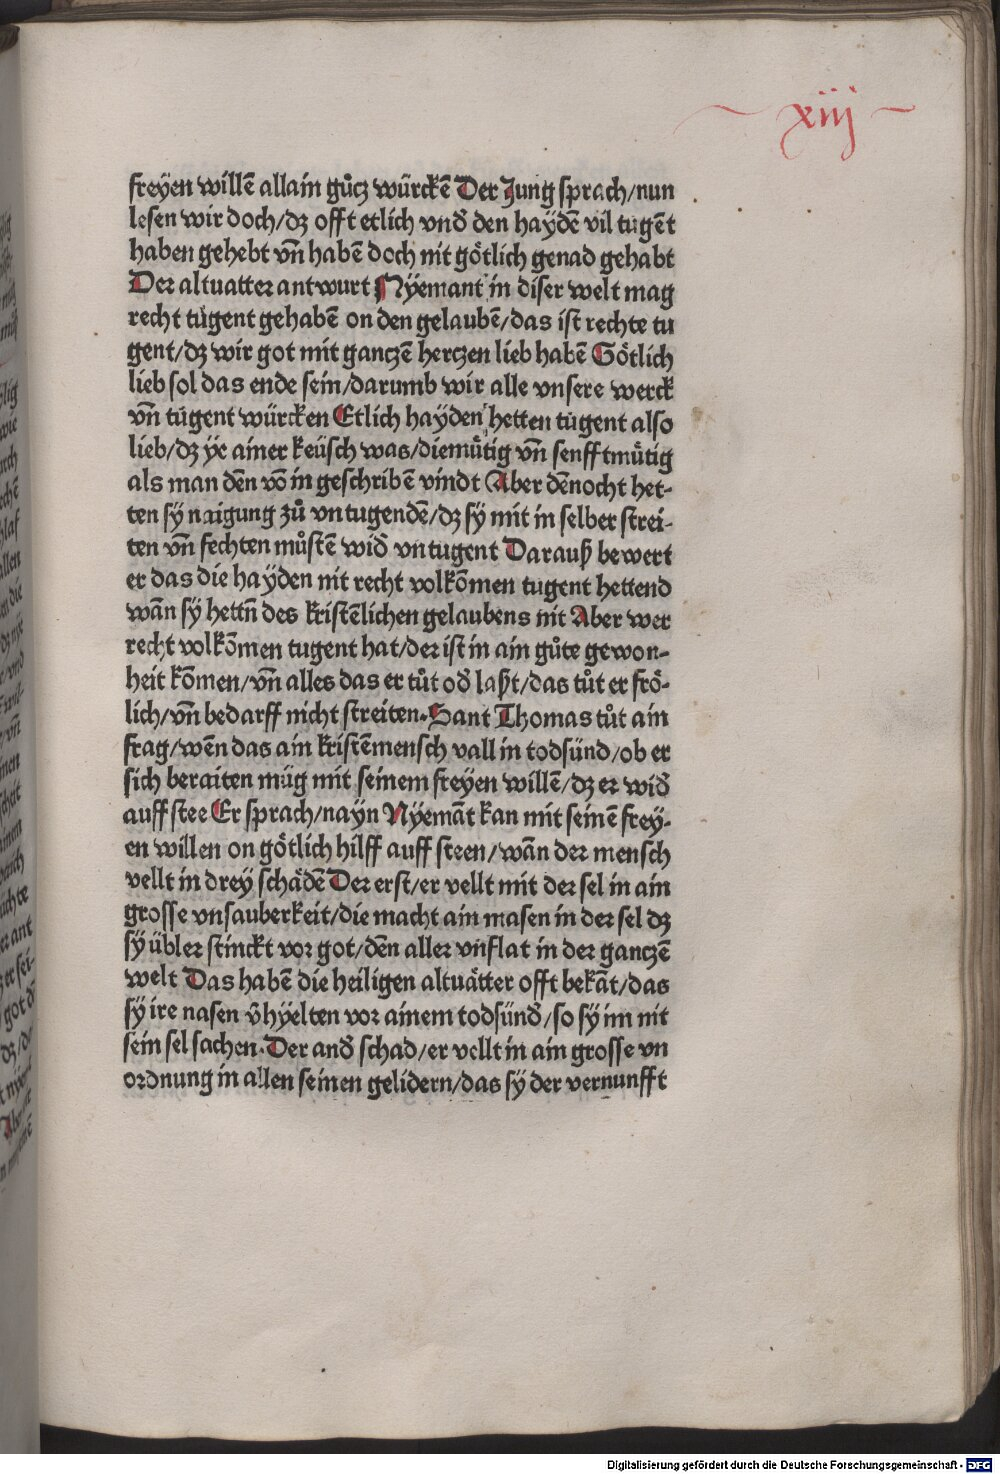 xiij
freyen willē allain gůcz würckē Der Jung sprach/nun
lesen wir doch/dz offt etlich vnd̄ den haydē vil tugēt
haben gehebt vn̄ habē doch nit götlich genad gehabt
Der altuatter antwurt Nyemant in diser welt mag
recht tůgent gehabē on den gelaubē/das ist rechte tu
gent/dz wir got mit ganczē herczen lieb habē Götlich
lieb sol das ende sein/darumb wir alle vnsere werck
vn̄ tügent würcken Etlich hayden hetten tugent also
lieb/dz yr ainer keüsch was/diemütig vn̄ senfftmütig
als man dēn vō in geschribē vindt Aber dēnocht het-
ten sy naigung zů vntugendē/dz sy mit in selber strei-
ten vn̄ fechten můstē wid̄ vntugent Darauß bewert
er das die hayden nit recht volkōmen tugent hettend
wān sy hettn̄ des kristēlichen gelaubens nit Aber wer
recht volkōmen tugent hat/der ist in ain gůte gewon-
heit kōmen/vn̄ alles das er tůt od̄ laßt/das tůt er frö-
lich/vn̄ bedarff nicht streiten. Sant Thomas tůt ain
frag/wēn das ain kristēmensch vall in todsünd/ob er
sich beraiten müg mit seinem freyen willē/dz er wid̄
auff stee Er sprach/nayn Nyemāt kan mit seinē frey-
en willen on götlich hilff auff steen/wān der mensch
vellt in drey schädē Der erst/er vellt mit der sel in ain
grosse vnsauberkeit/die macht ain masen in der sel dz
sy übler stinckt vor got/dēn aller vnflat in der ganczē
welt Das habē die heiligen altuätter offt bekāt/das
sy ire nasen v̄hyelten vor ainem todsünd̄/so sy im nit
sein sel sachen. Der and̄ schad/er vellt in ain grosse vn
ordnung in allen seinen gelidern/das sy der vernunfft
Digitalisierung gefördert durch die Deutsche Forschungsgemeinschaft - DFG